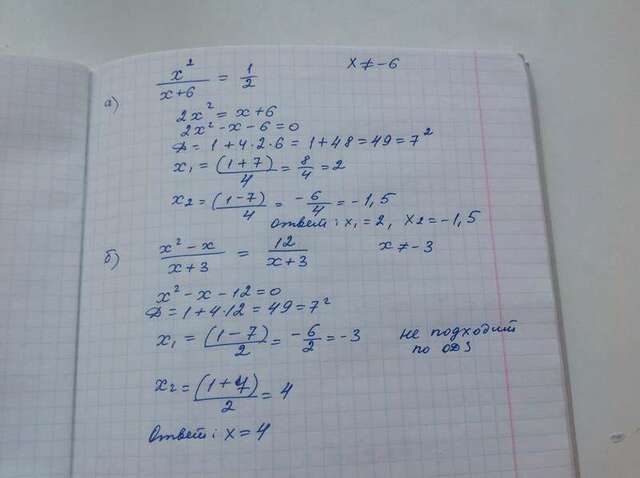 а) x²/(x+6) = 1/2   x ≠ -6
2x² = x+6
2x² - x - 6 = 0
D = 1 + 4·2·6 = 1 + 48 = 49 = 7²
x₁ = (1+7)/4 = 8/4 = 2
x₂ = (1-7)/4 = -6/4 = -1,5
ответ: x₁ = 2, x₂ = -1,5
б) (x² - x)/(x+3) = 12/(x+3)   x ≠ -3
x² - x - 12 = 0
D = 1 + 4·12 = 49 = 7²
x₁ = (1-7)/2 = -6/2 = -3   не подходит
по ОДЗ
x₂ = (1+7)/2 = 4
Ответ: x = 4